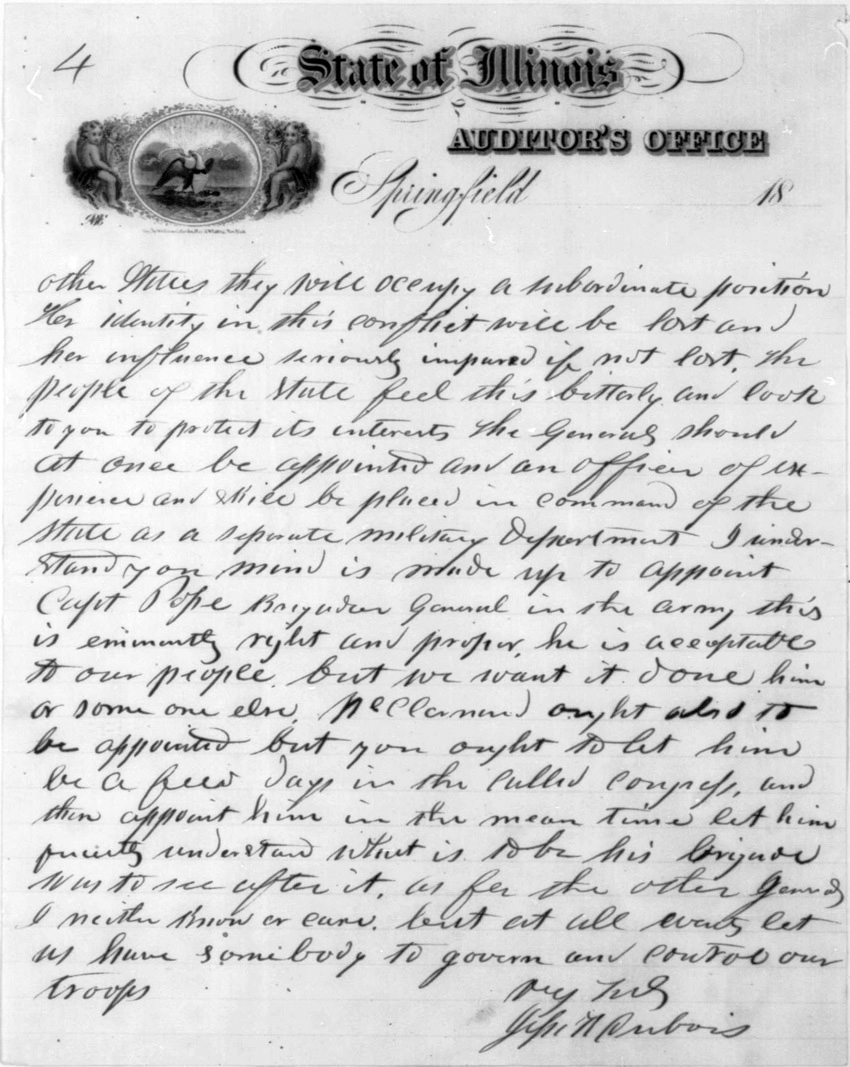 4
State of Illinois
AUDITOR'S OFFICE
Springfield 18
other States they will occupy a subordinate position
Her identity in this conflict will be lost and
her influence seriously impared if not lost, The
people of the State feel this bitterly and look
to you to protect its interests The Generals should
at once be appointed and an officer of ex-
perience and skill be placed in command of the
State as a seperate military Department I under-
stand you mind is made up to appoint
Capt Pope Brigadier General in the army this
is eminently right and proper, he is acceptable
to our people, but we want it done him
or some one else, McClernand ought also to
be appointed but you ought to let him
be a few days in the called congress, and
then appoint him in the mean time let him
understand what is to be his brigade
to see after it, as for the other Generals
I neither know or care. but at all events let
us have somebody to govern and control our
troops
Jesse K Dubois